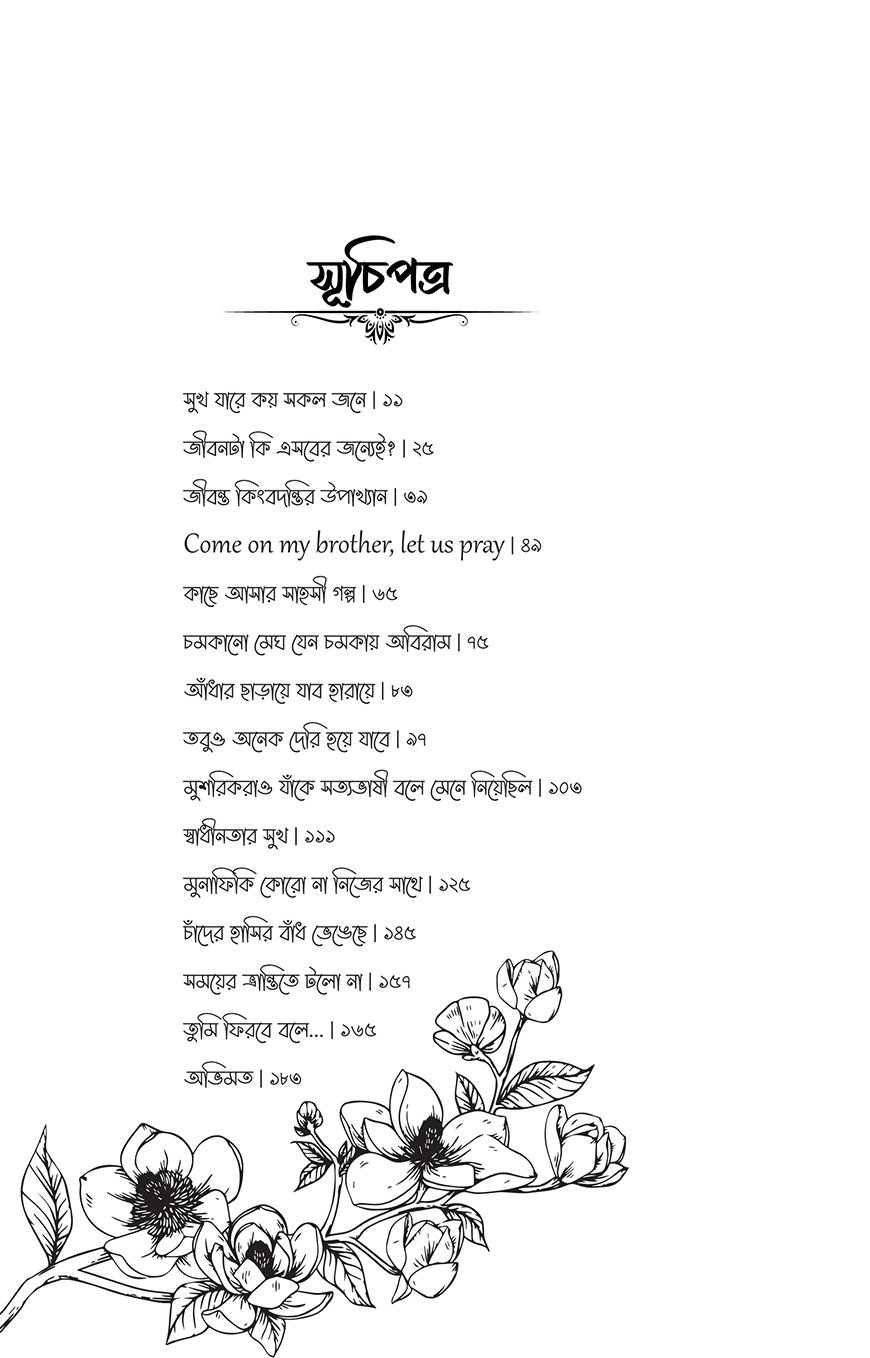 সূচিপত্র
সুখ যারে কয় সকল জনে | ১১
জীবনটা কি এসবের জন্যেই? | ২৫
জীবন্ত কিংবদন্তির উপাখ্যান | ৩৯
Come on my brother, let us pray | ৪৯
কাছে আসার সাহসী গল্প | ৬৫
চমকানো মেঘ যেন চমকায় অবিরাম | ৭৫
আঁধার ছাড়ায়ে যাব হারায়ে | ৮৩
তবুও অনেক দেরি হয়ে যাবে | ৯৭
মুশরিকরাও যাঁকে সত্যভাষী বলে মেনে নিয়েছিল | ১০৩
স্বাধীনতার সুখ | ১১১
মুনাফিকি কোরো না নিজের সাথে | ১২৫
চাঁদের হাসির বাঁধ ভেঙেছে | ১৪৫
সময়ের ভ্রান্তিতে টলো না | ১৫৭
তুমি ফিরবে বলে... | ১৬৫
অভিমত | ১৮৩